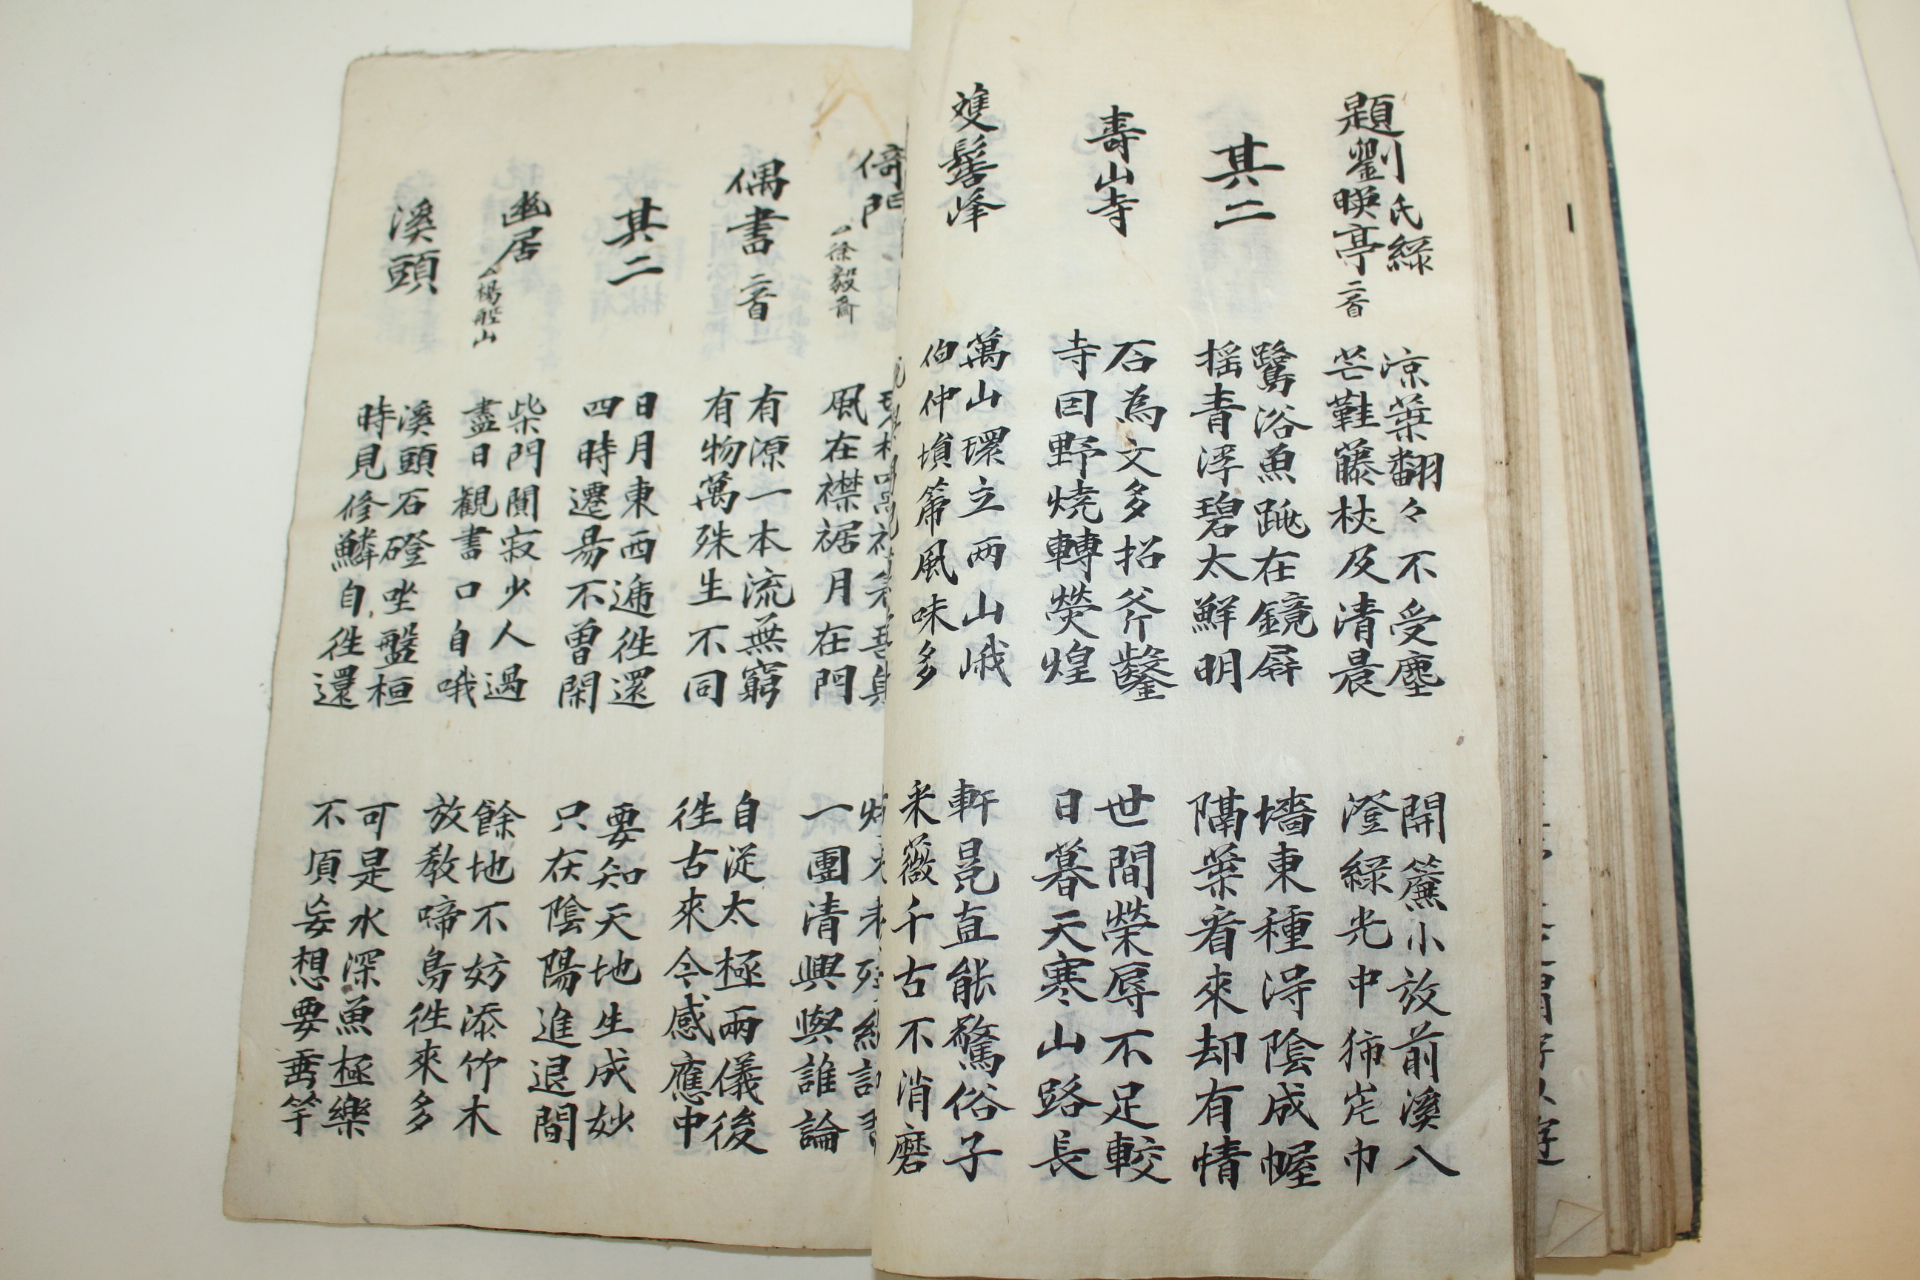 題劉氏綠
暎亭 二首
凉葉翻々不受塵
芒鞋藤杖及清晨
開簾小放前溪八
澄綠光中狋岸巾
其二
鷺浴魚跳在鏡屏
揺青浮碧太鮮明
墻東種得陰成幄
隔葉看來却有情
壽山寺
石為文多招斧鑿
寺因野燒轉熒煌
世間榮辱不足較
日暮天寒山路長
雙髻峰
萬山環立兩山峨
伯仲塤箎風味多
軒冕直能驚俗子
采薇千古不消磨
倚門
徐毅齋
風在襟裾月在門
一團清興與誰論
偶書 二首
有源一本流無窮
有物萬殊生不同
自從太極兩儀後
徃古來今感應中
其二
日月東西逓徃還
四時遷昜不曾閑
要知天地生成妙
只在陰陽進退間
幽居
楊船山
柴門閴寂少人過
盡日觀書口自哦
餘地不妨添竹木
放教啼鳥徃來多
溪頭
溪頭石磴坐盤桓
時見修鱗自徃還
可是水深魚極樂
不須妄想要垂竿